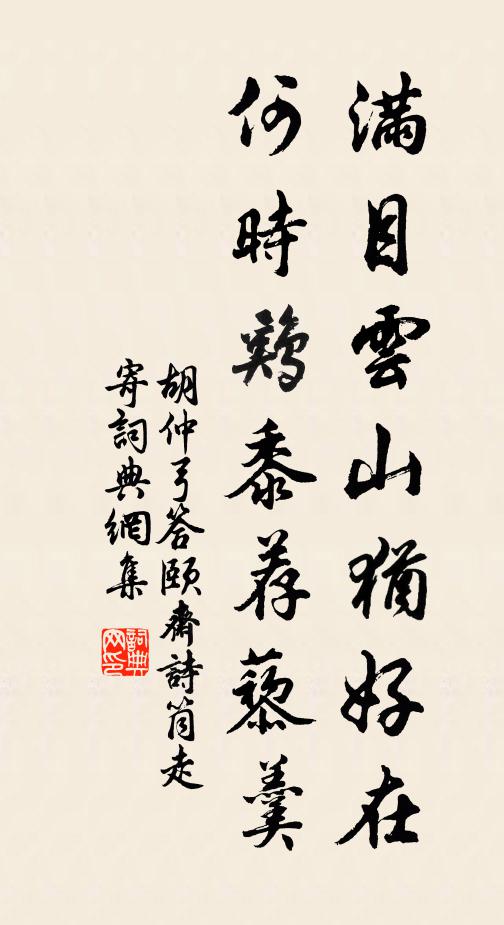 滿目雲山猶好在
何時鷄黍荐藜羹
胡仲弓答頤齋詩筒走
寄詞典網集
詞典网印